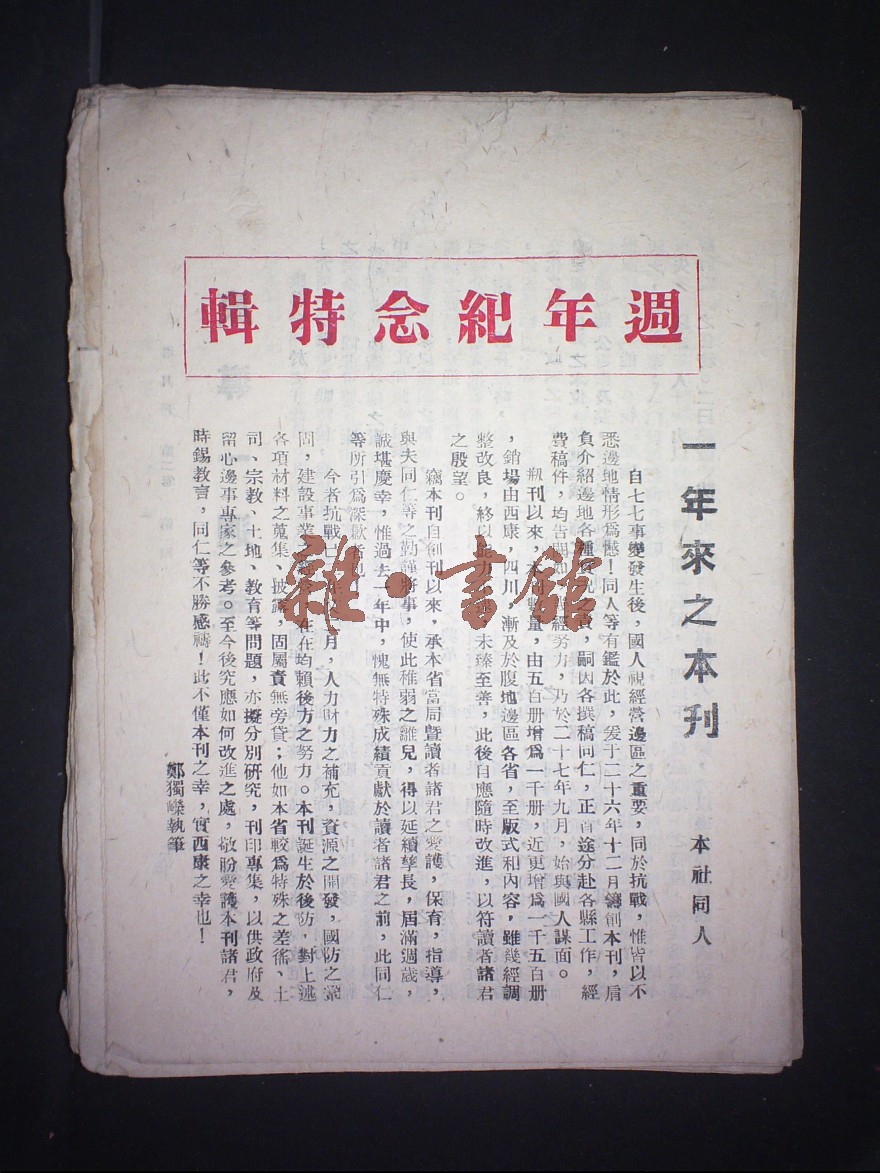 週年紀念特輯
一年來之本刊
本社同人
自七七事變發生後，國人視經營邊區之重要，同於抗戰，惟皆以不
悉邊地情形為憾！同人等有鑑於此，爰于二十六年十二月籌創本刊，肩
負介紹邊地各種 況之責，嗣因各撰稿同仁，正首途分赴各縣工作，經
費稿件，均告 經努力，乃於二十七年九月，始與國人謀面。
刱刊以來，本刊數量，由五百册增為一千册，近更增為一千五百册
，銷場由西康，四川，漸及於腹地邊區各省，至版式和內容，雖幾經調
整改良，終以能力 未臻至善，此後自應隨時改進，以符讀者諸君
之殷望。
竊本刊自創刊以來，承本省當局暨讀者諸君之愛護，保育，指導，
與夫同仁等之勤謹將事，使此稚弱之雛兒，得以延續孳長，屆滿週歲，
誠堪慶幸，惟過去一年中，愧無特殊成績貢獻於讀者諸君之前，此同仁
等所引為深歉者也
今者抗戰已 月，人力財力之補充，資源之開發，國防之鞏
固，建設事業之 在在均賴後方之努力。本刊誕生於後防，對上述
各項材料之蒐集、披露，固屬責無旁貸；他如本省較為特殊之差徭、土
司、宗教、土地、教育等問題，亦擬分別研究，刊印專集，以供政府及
留心邊事專家之參考。至今後究應如何改進之處，敬盼愛護本刊諸君，
時錫教言，同仁等不勝感禱！此不僅本刊之幸，實西康之幸也！
鄭獨嶸執筆
雜·書館